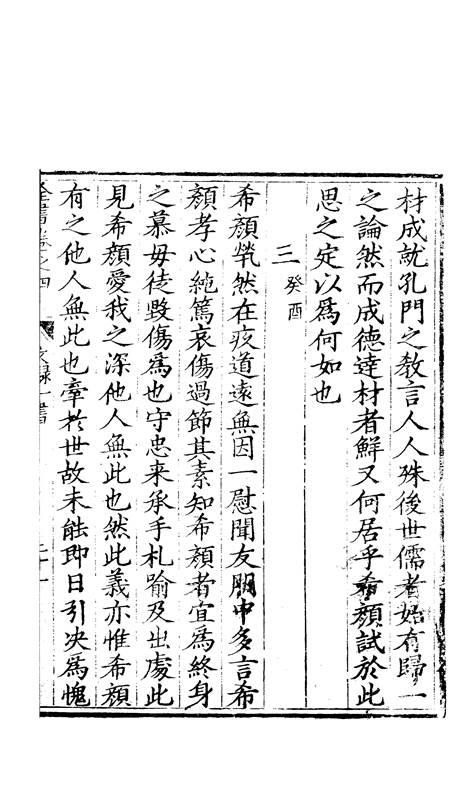 材成就孔門之教言人人殊後世儒者始有歸一
之論然而成德達材者鮮又何居乎希顔試於此
思之定以爲何如也
三 癸酉
希顔煢然在疚道遠無因一慰聞友朋中多言希
顔孝心純篤哀傷過節其素知希顔者宜爲終身
之慕毋徒毀傷爲也守忠来承手札喻及出處此
見希顔愛我之深他人無此也然此義亦惟希顔
有之他人無此也牽於世故未能即日引决爲愧
全書卷之四 文録一書